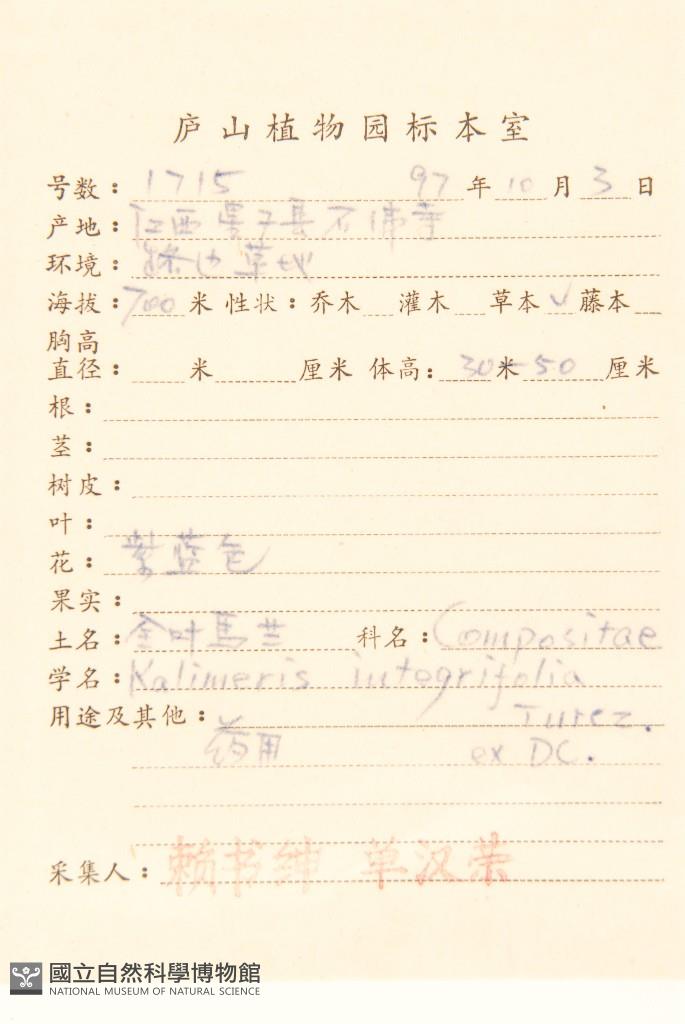 庐山植物园标本室
号数：1715 97年10月3日
产地：江西星子县石佛寺
环境：路边草地
海拔：700米 性状：乔木 灌木 草本√藤本
胸高
直径： 米 厘米 体高：30米-50厘米
根：
茎：
树皮：
叶：
花：紫蓝色
果实：
土名：全叶馬兰 科名：Compositae
学名：Kalimeris integrifolia
用途及其他： Turcz.
药用 ex DC.
采集人：赖书绅 单汉荣
國立自然科學博物館
NATIONAL MUSEUM OF NATURAL SCIENCE